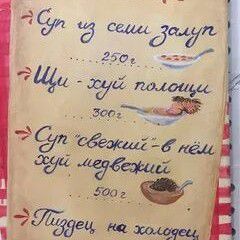 Суп из семи залуп
250г
Щи - хуй полощи
300г
Суп "свежий" - в нём
хуй медвежий
500г
Пиздец на холодец